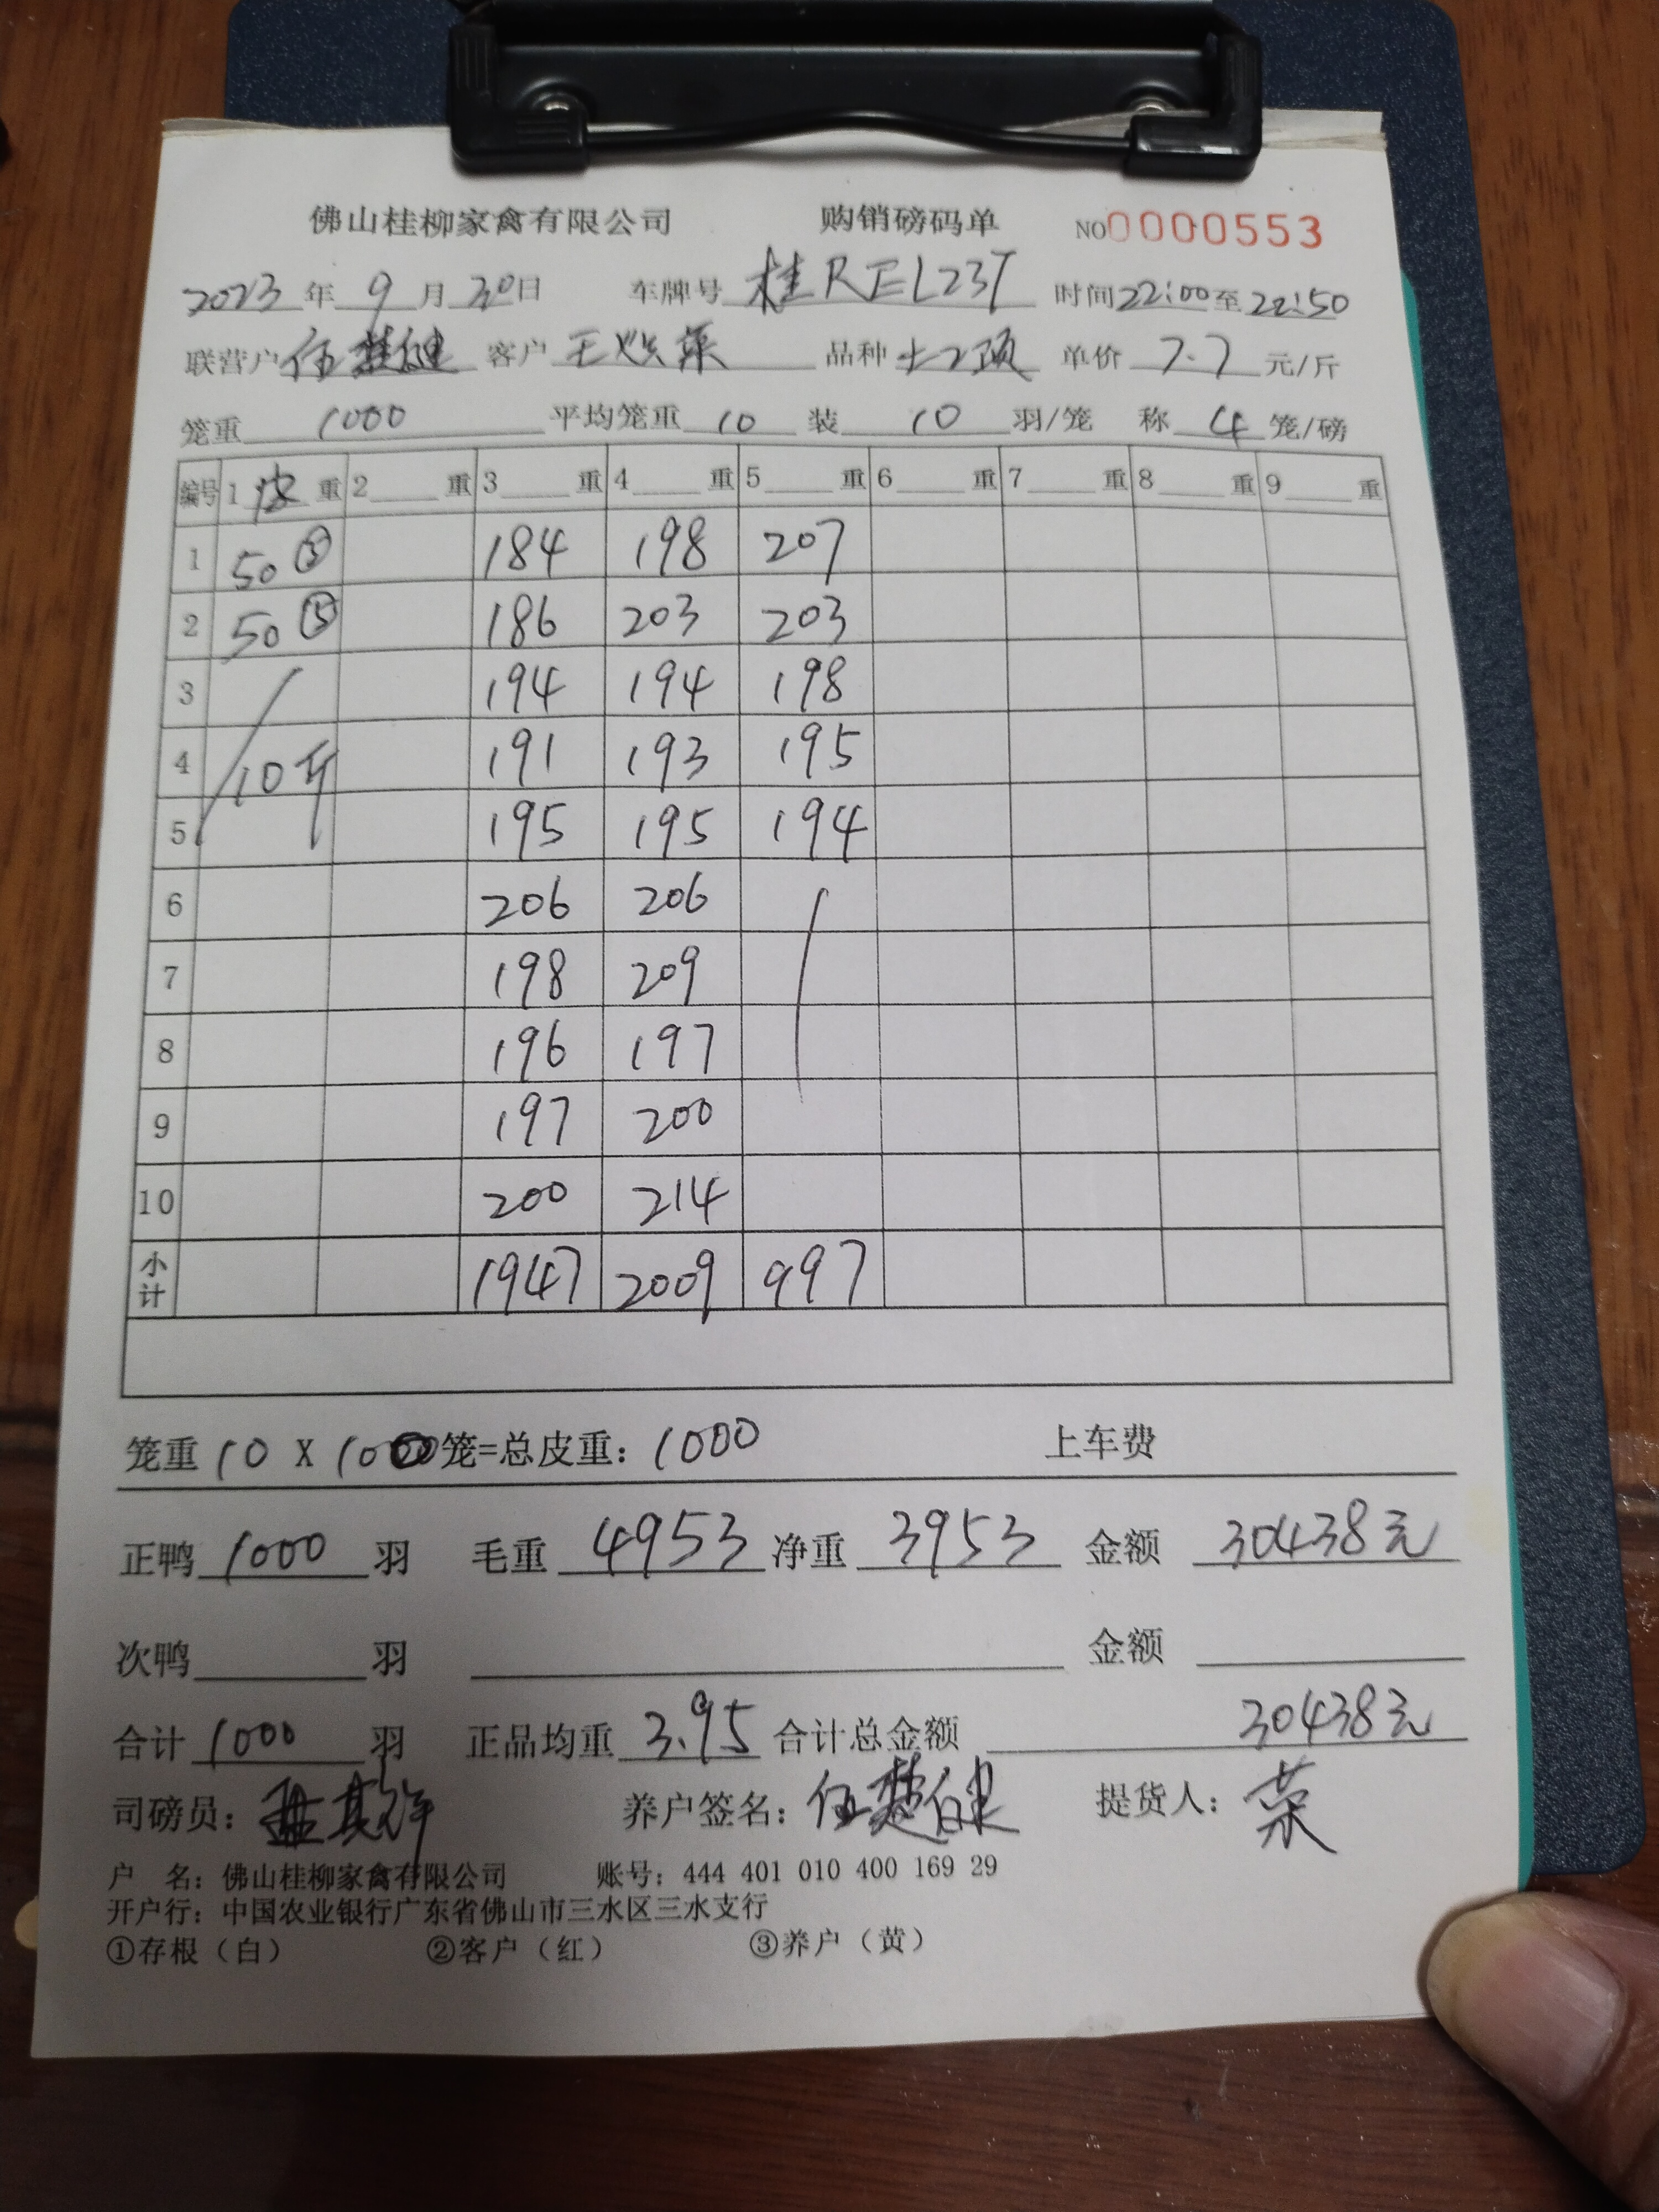 佛山桂柳家禽有限公司 购销磅码单 NO0000553
2023年9月30日 车牌号 桂REL237 时间22:00至22:50
联营户 伍楚健 客户 王 品种 土2 单价 7.7 元/斤
笼重 1000 平均笼重 10 装 10 羽/笼 称 4 笼/磅
编号 1 皮 重 2 重 3 重 4 重 5 重 6 重 7 重 8 重 9 重
1 50⑤ 184 198 207
2 50⑤ 186 203 203
3 194 194 198
4 10斤 191 193 195
5 195 195 194
6 206 206
7 198 209
8 196 197
9 197 200
10 200 214
小计 1947 2009 997
笼重 10 X 100笼=总皮重: 1000 上车费
正鸭 1000 羽 毛重 4953 净重 3953 金额 30438元
次鸭 羽 金额
合计 1000 羽 正品均重 3.95 合计总金额 30438元
司磅员: 养户签名: 伍楚健 提货人: 荣
户 名: 佛山桂柳家禽有限公司 账号: 444 401 010 400 169 29
开户行: 中国农业银行广东省佛山市三水区三水支行
①存根（白） ②客户（红） ③养户（黄）